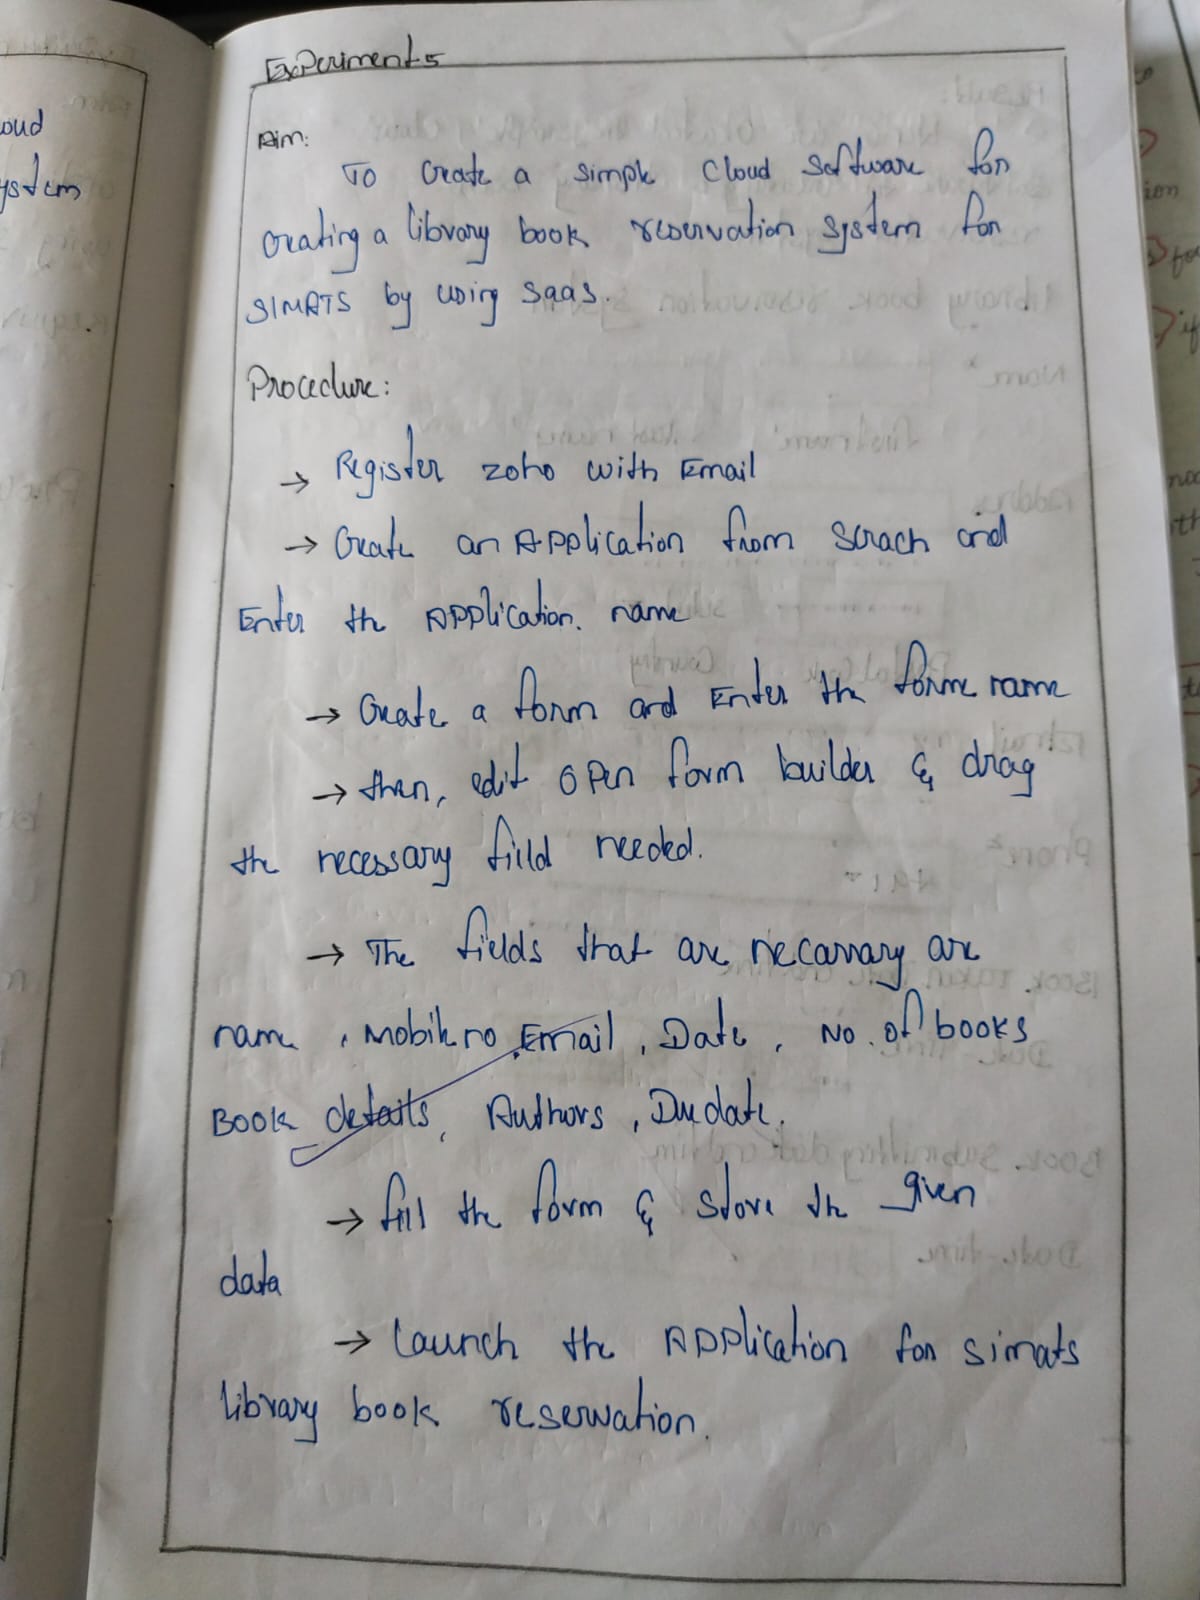 Experiment 5
Aim:
To Create a simple Cloud Software for
creating a library book reservation system for
SIMATS by using saas.
Procedure:
→ Register zoho with Email
→ Create an Application from scrach and
Enter the Application. name
→ Create a form and Enter the form name
→ then, edit open form builder & drag
the necessary filld needed.
→ The fields that are necarrary are
name, Mobile no, Email, Date, No. of books
Book details, Authors, Due date.
→ fill the form & store the given
data
→ Launch the Application for simats
library book reservation.
oud
ystem